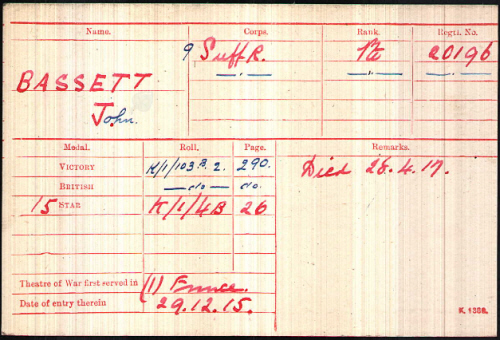 Name. Corps. Rank. Regtl. No.
BASSETT 9 Suff R. Pte 20196
John.
Medal. Roll. Page. Remarks.
VICTORY K/1/103 B. 2. 290. Died 28.4.17.
BRITISH —do— do.
15 STAR K/1/4B 26
Theatre of War first served in (1) France.
Date of entry therein 29.12.15.
K. 1380.